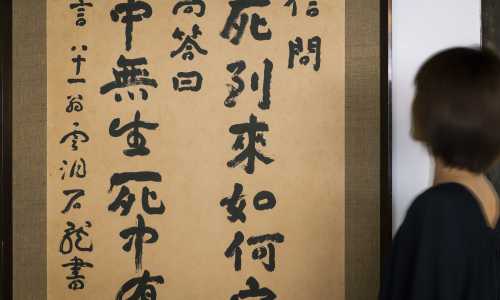 信問
死到來如何
尚答曰
中無生死中有
言 八十一翁 石龍書